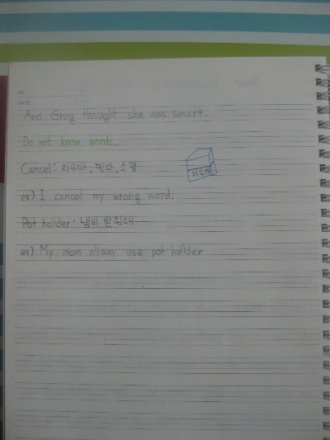 And Greg thought she was smart.
Do not know words.
Cancel: 지우다,
ex) I cancel my wrong word.
Pot holder: 냄비 받침대
ex) My mom allway use pot hollder